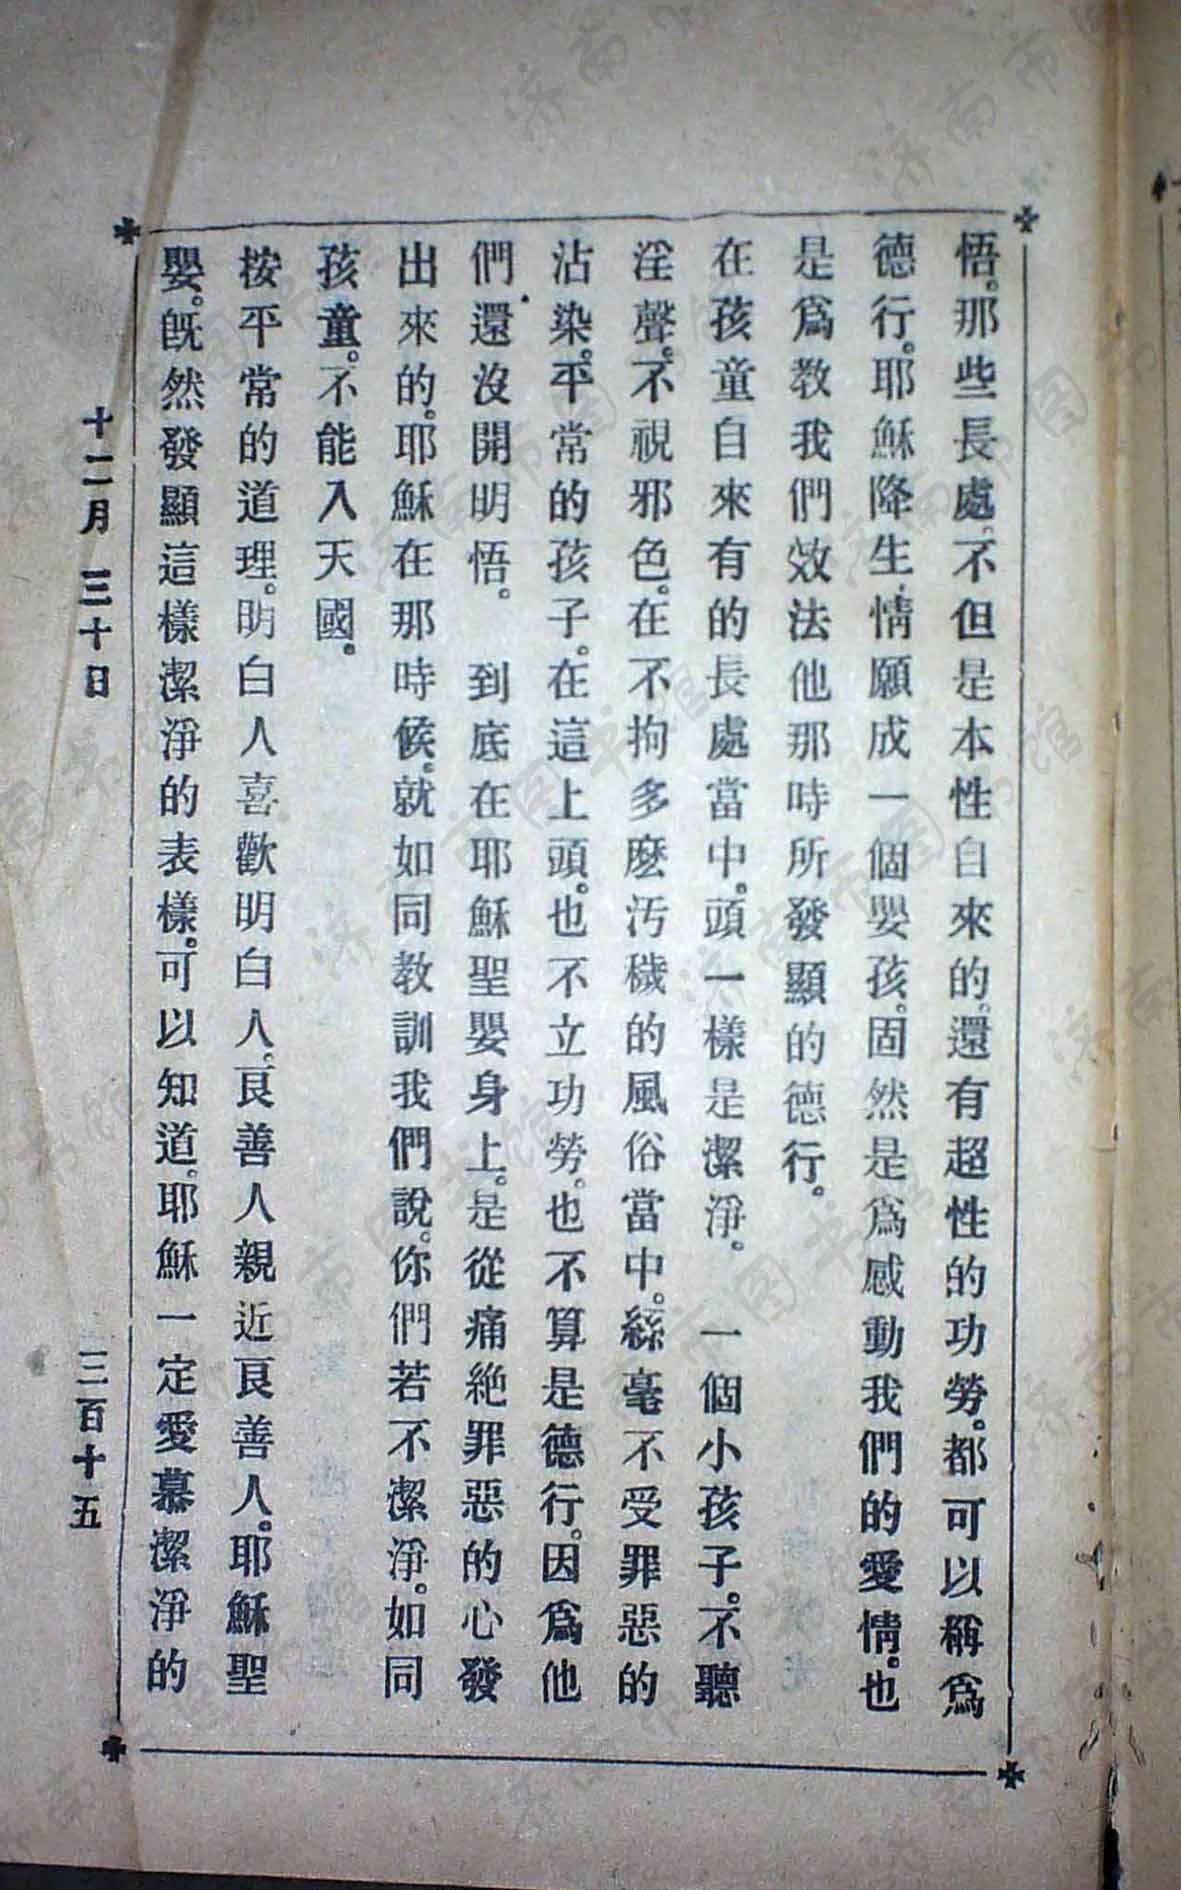 悟。那些長處。不但是本性自來的。還有超性的功勞。都可以稱爲
德行。耶穌降生。情願成一個嬰孩。固然是爲感動我們的愛情。也
是爲教我們效法他那時所發顯的德行。
在孩童自來有的長處當中。頭一樣是潔淨。 一個小孩子。不聽
淫聲。不視邪色。在不拘多麽汚穢的風俗當中。絲毫不受罪惡的
沾染。平常的孩子。在這上頭。也不立功勞。也不算是德行。因爲他
們還沒開明悟。 到底在耶穌聖嬰身上。是從痛絶罪惡的心發
出來的。耶穌在那時候。就如同教訓我們說。你們若不潔淨。如同
孩童。不能入天國。
按平常的道理。明白人喜歡明白人。良善人親近良善人。耶穌聖
嬰。旣然發顯這樣潔淨的表樣。可以知道。耶穌一定愛慕潔淨的
十二月 三十日 三百十五
济南市图书馆